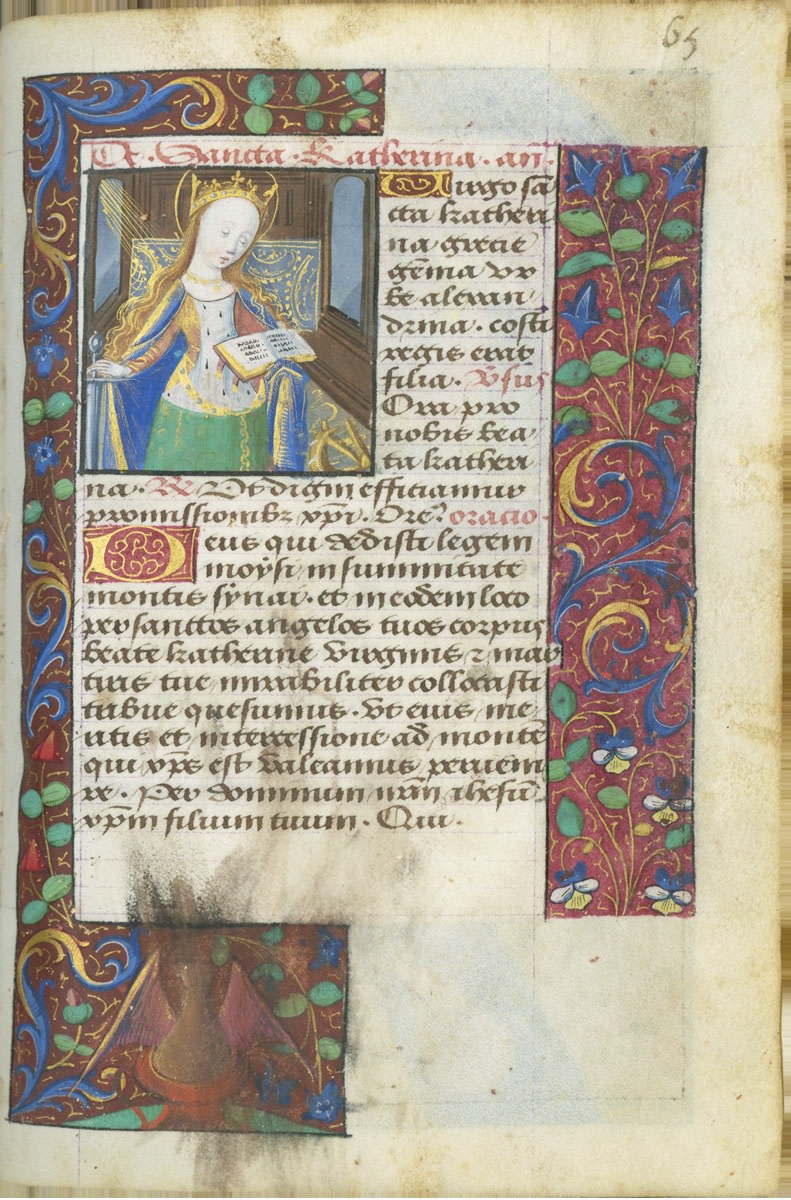 65
De · Sancta · Katherina · an̄.
Uirgo sā
cta kateri
na grecie
gēma vr
be alexan
drina · costi
regis erat
filia · V̄sus
Ora pro
nobis bea
ta kateri
na · R̄ Ut digni efficiamur
promissionibz xp̄i · Ore? oracio ·
Deus qui dedisti legem
moÿsi in summitate
montis sÿnai · et in eodem loco
per sanctos angelos tuos corpus
beate katherine virginis ⁊ mar
tiris tue mirabiliter collocasti
tribue quesumus · Ut eius me
ritis et intercessione ad montē
qui xp̄s est valeamus peruem
re · Per dominum nr̄m ihesū
xp̄m filium tuum · Qui ·